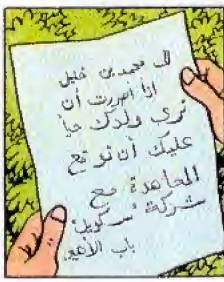 الى محمد بن خليل
اذا اصررت أن
ترى ولدك حياً
عليك أن توقع
المعاهدة مع
شركة "سكويل"
باب